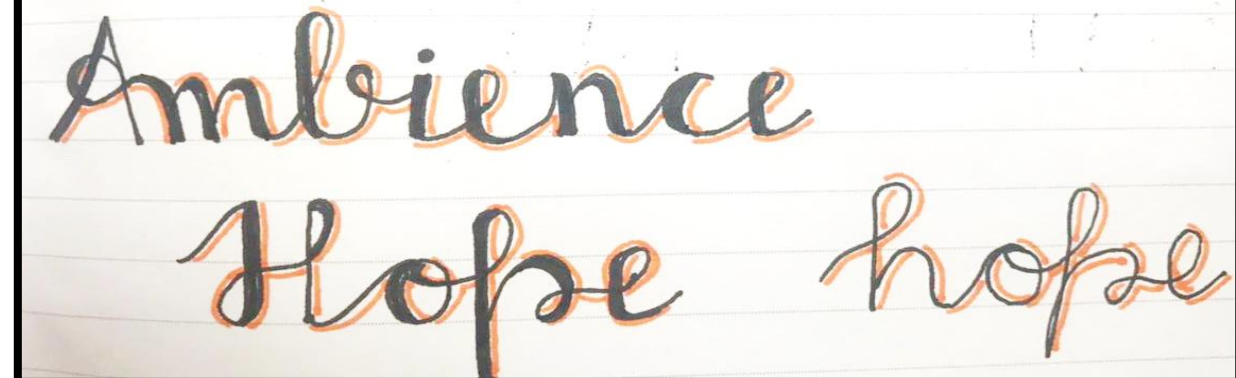 Ambience
Hope hope